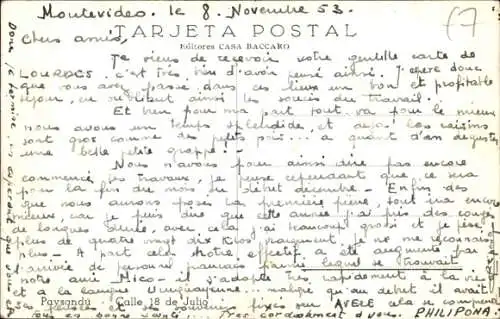 Montevideo. le 8 Novembre 53.
TARJETA POSTAL
Editores CASA BACCARO
Chers amis,
Je viens de recevoir votre gentille carte de
LOURDES. c'est très bien d'avoir pensé ainsi. J'espère donc
que vous avez passé dans ces lieux un bon et profitable
séjour, en oubliant ainsi les soucis du travail.
Et bien pour ma part tout va pour le mieux
nous avons un temps splendide, et déjà les raisins
sont gros comme des petits pois. a quant d'en déguster
une belle petite grappe!
Nous n'avons pour ainsi dire pas encore
commencé les travaux, je pense cependant que ce sera
pour la fin du mois, ou début décembre - Enfin dès
que nous aurons posé la première pierre, tout ira encore
mieux, car je puis dire que cette année j'ai pris des
de longues durée, avec cela j'ai beaucoup grossi et je
plus de quatre vingt dix kilos, vraiment je ne me reconnais
plus - A part cela notre effectif a été augmenté par
l'arrivée de français parmi lequel se trouvait
notre ami Mico - il s'adapte très rapidement à la vie
et a la langue Uruguayenne, malgré qu'au début il avait
ses et ses souvenirs fixés sur
Paysandú Calle 18 de Julio
Très cordialement à vous. PHILIPONA